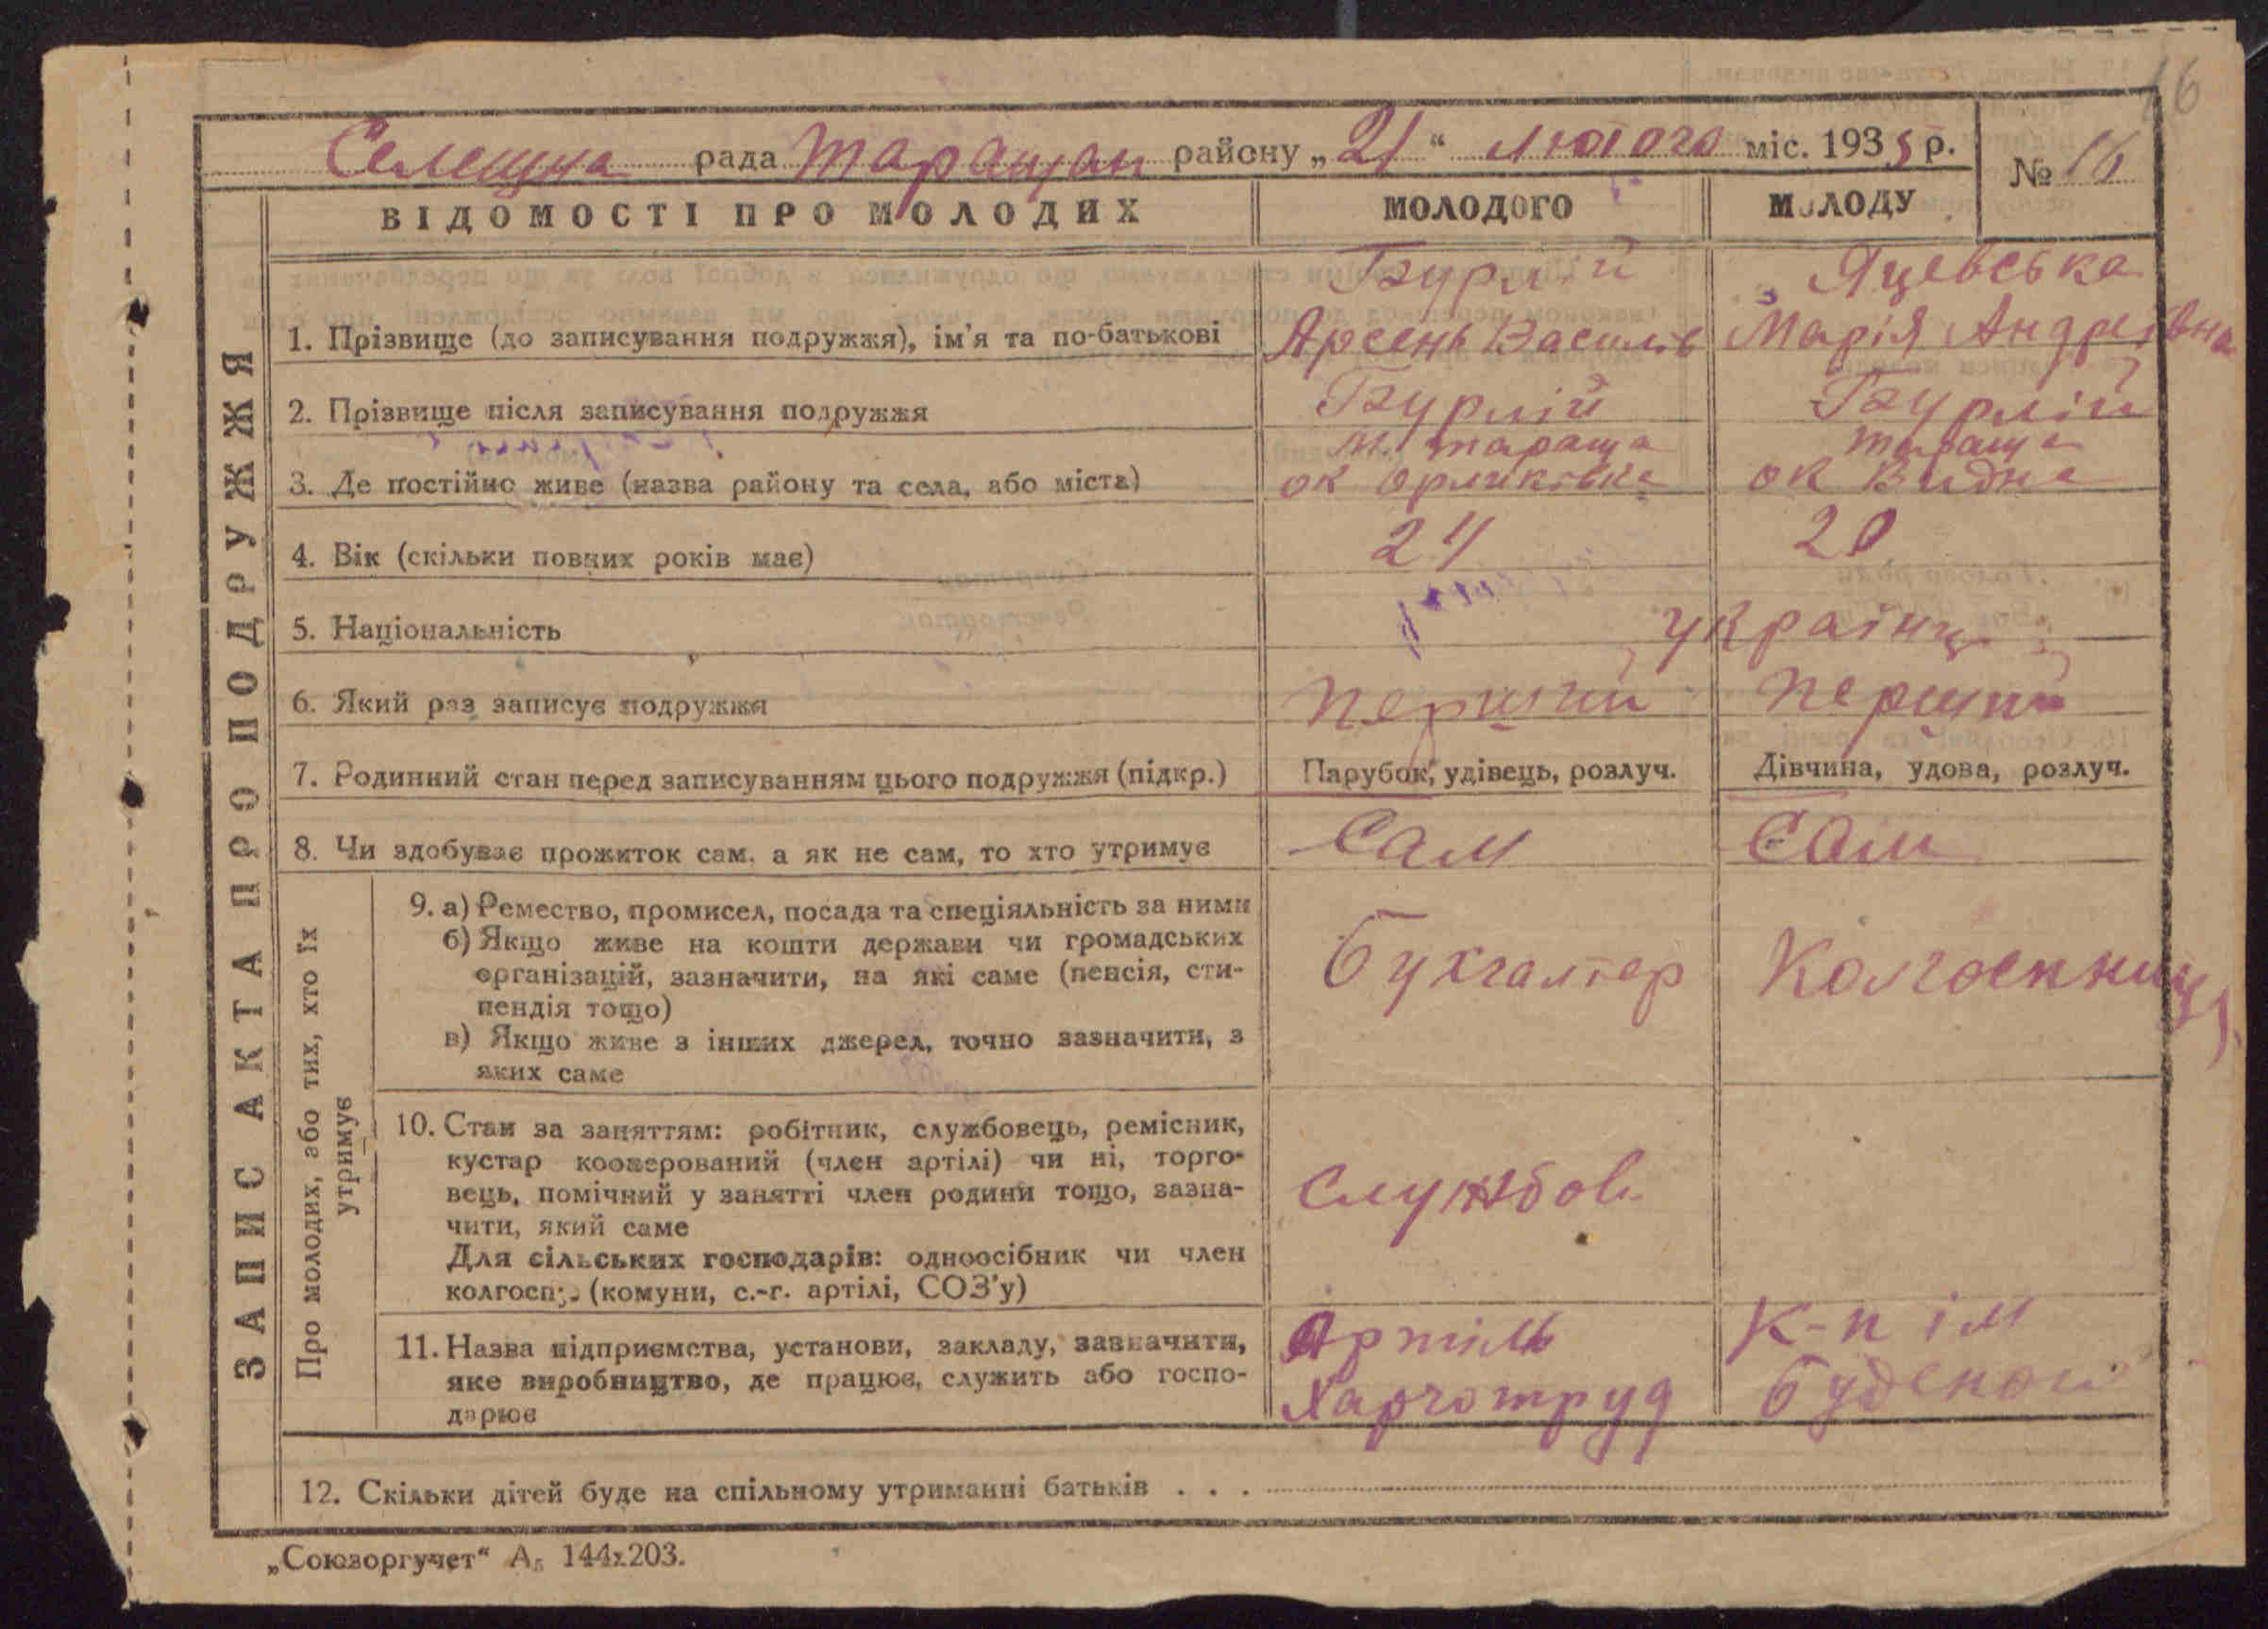 16
Селещна рада Таращан району „21“ лютого міс. 1935 р.
№ 16
ВІДОМОСТІ ПРО МОЛОДИХ
МОЛОДОГО
МОЛОДУ
ЗАПИС АКТА ПРО ПОДРУЖЖЯ
Бурлій
Яцевська
1. Прізвище (до записування подружжя), ім'я та по-батькові
Арсень Василів
Марія Андреївна
2. Прізвище після записування подружжя
Бурлій
Бурлій
м. Тараща
Тараща
3. Де постійно живе (назва району та села, або міста)
ок Орликівка
ок Видна
4. Вік (скільки повних років має)
24
20
5. Національність
українці
6. Який раз записує подружжя
перший
перший
7. Родинний стан перед записуванням цього подружжя (підкр.)
Парубок, удівець, розлуч.
Дівчина, удова, розлуч.
8. Чи здобуває прожиток сам, а як не сам, то хто утримує
Сам
Сам
Про молодих, або тих, хто їх
утримує
9. а) Ремество, промисел, посада та спеціяльність за ними
б) Якщо живе на кошти держави чи громадських
організацій, зазначити, на які саме (пенсія, сти-
пендія тощо)
в) Якщо живе з інших джерел, точно зазначити, з
яких саме
бухгалтер
Колгоспниця
10. Стан за заняттям: робітник, службовець, ремісник,
кустар кооперований (член артілі) чи ні, торго-
вець, помічний у занятті член родини тощо, зазна-
чити, який саме
Для сільських господарів: одноосібник чи член
колгоспу (комуни, с.-г. артілі, СОЗ'у)
Службов.
11. Назва підприємства, установи, закладу, зазначити,
яке виробництво, де працює, служить або госпо-
дарює
Артіль
Харчотруд
К-п ім
Буденого
12. Скільки дітей буде на спільному утриманні батьків . . .
„Союзоргучет“ А5 144х203.